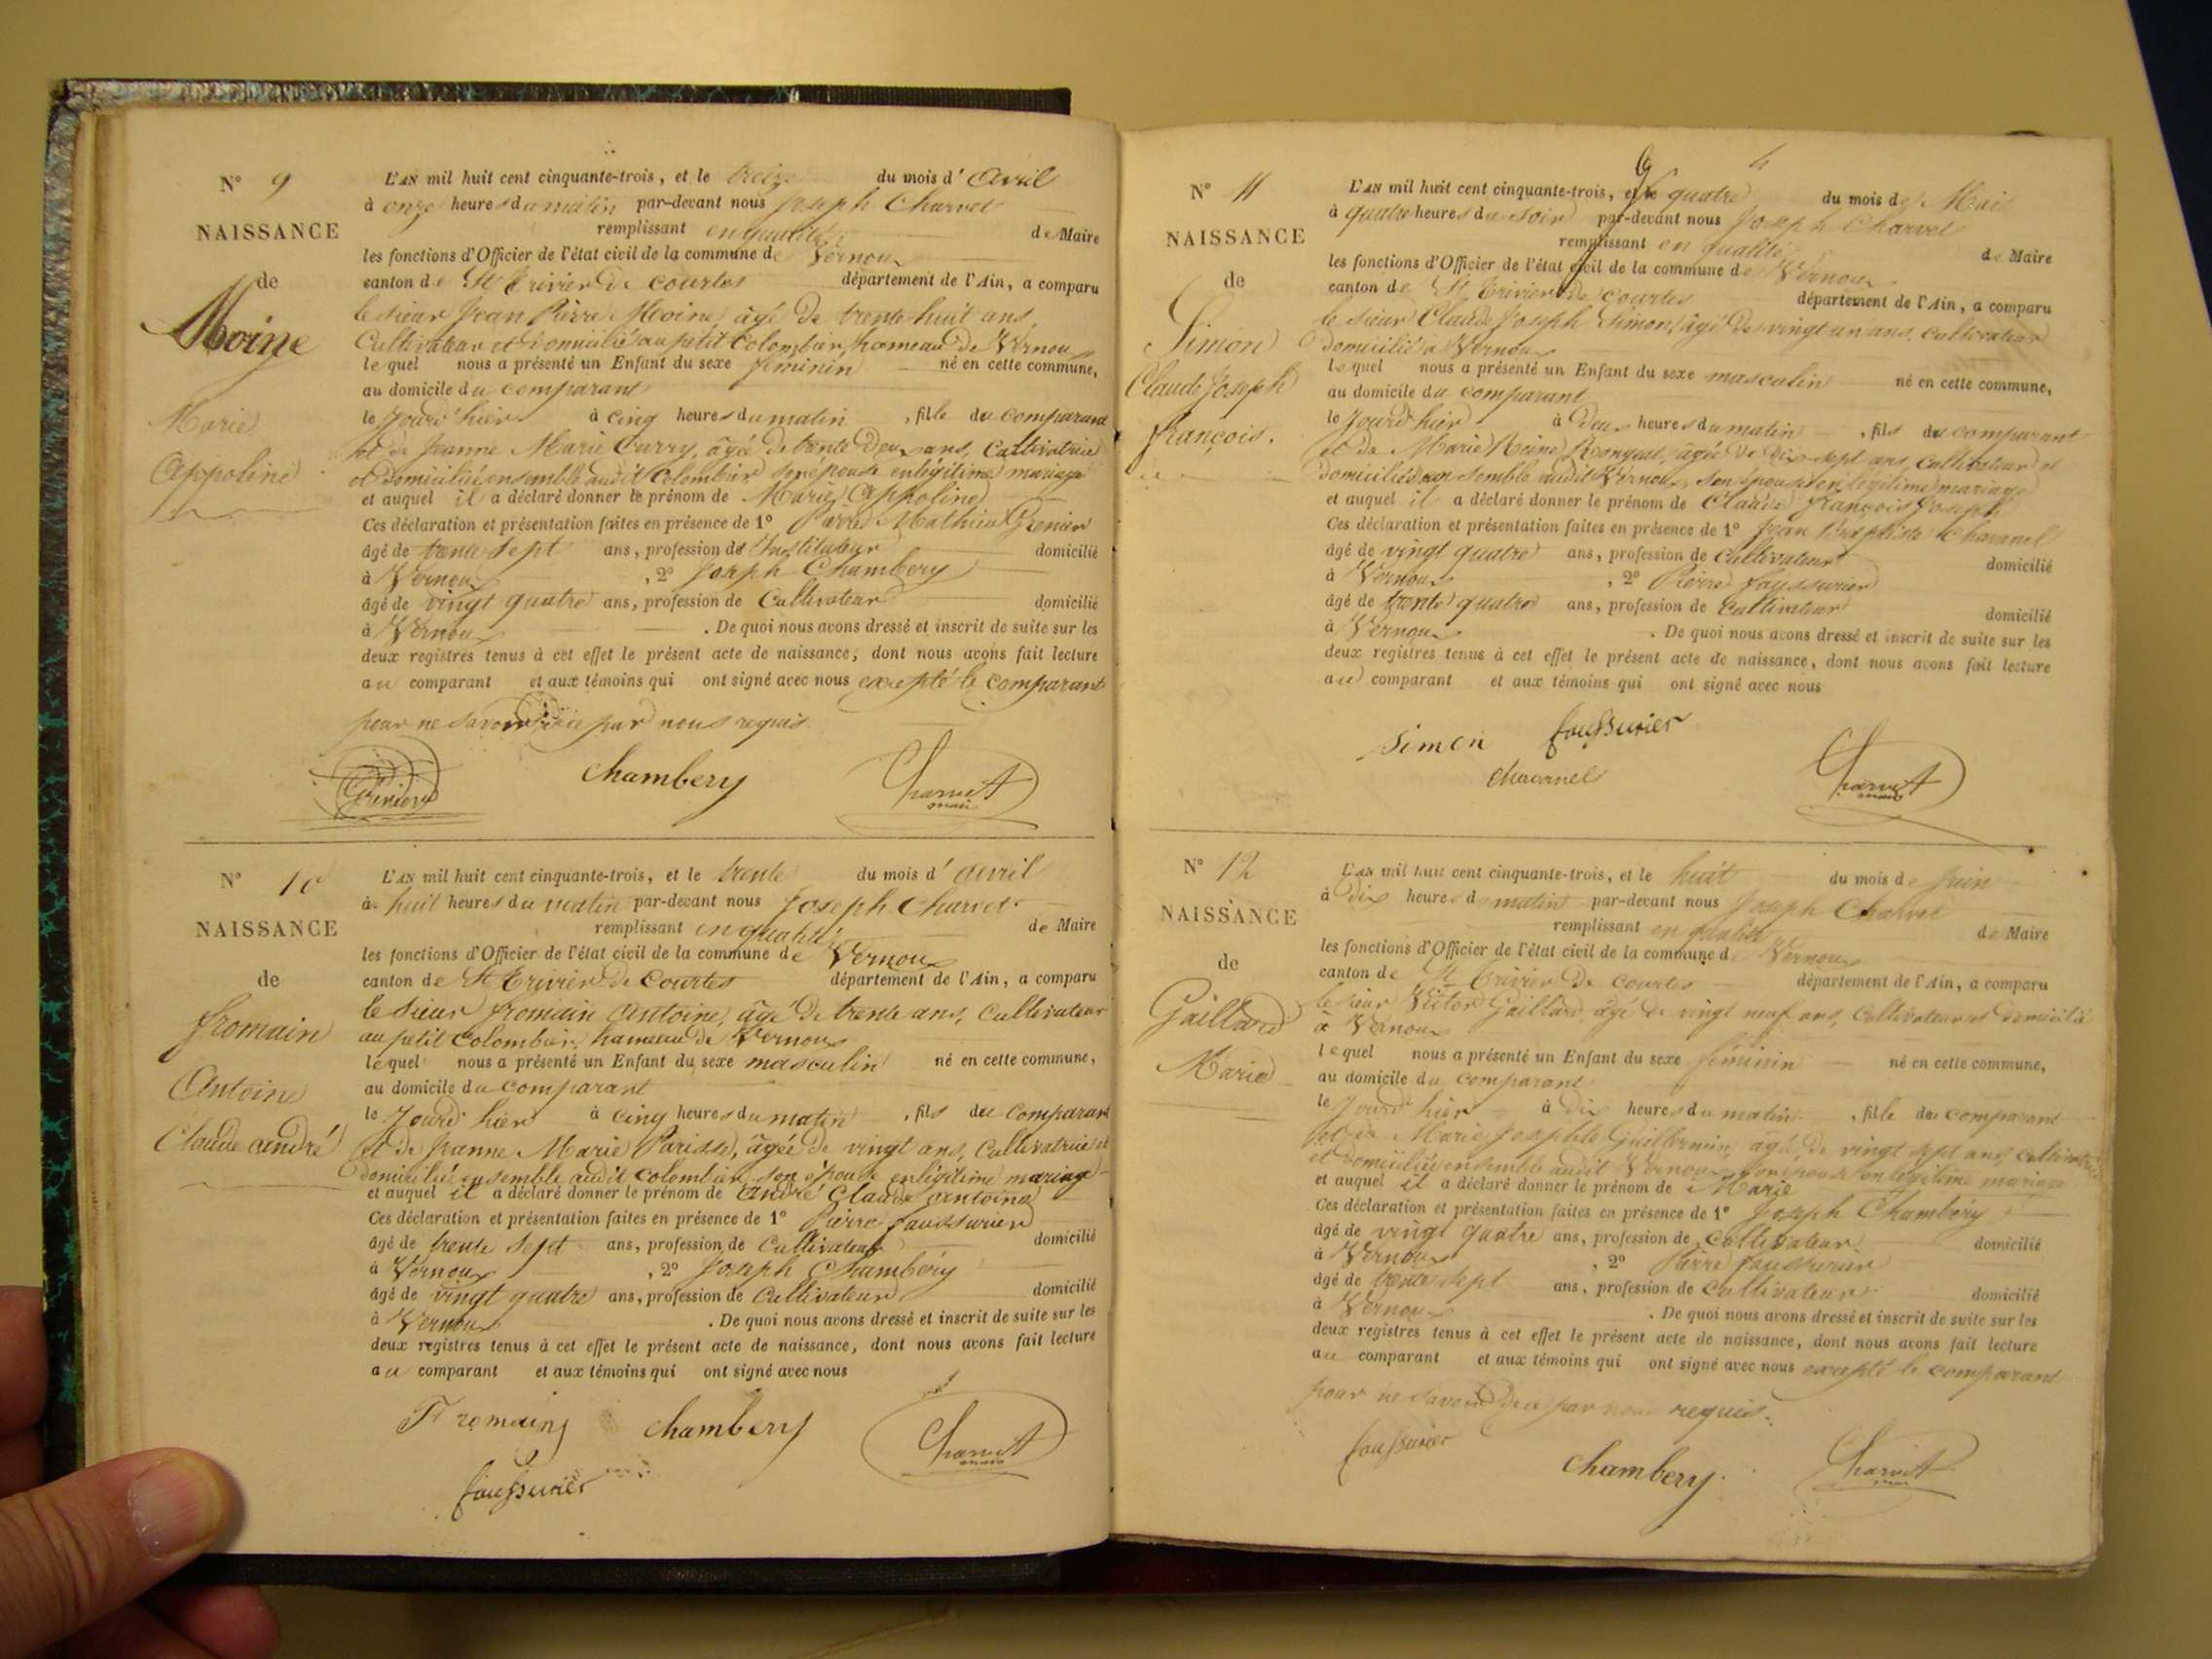 N° 9
NAISSANCE
de
Moine
Marie
Appoline
L'AN mil huit cent cinquante-trois, et le treize du mois d'Avril
à onze heures du matin par-devant nous Joseph Charvet
remplissant en qualité de Maire
les fonctions d'Officier de l'état civil de la commune de Vernoux
canton de St Trivier de Courtes département de l'Ain, a comparu
le sieur Jean Pierre Moine, âgé de trente huit ans
Cultivateur et domicilié au petit Colombier, hameau de Vernoux
lequel nous a présenté un Enfant du sexe féminin né en cette commune,
au domicile du comparant
le jourd'hier à cinq heures du matin, fille du comparant
et de Jeanne Marie Carry, âgée de trente deux ans, Cultivatrice
et domiciliée ensemble audit Colombier son épouse en légitime mariage
et auquel il a déclaré donner le prénom de Marie Appoline
Ces déclaration et présentation faites en présence de 1° Mathieu Grenier
âgé de trente sept ans, profession de Instituteur domicilié
à Vernoux, 2° Joseph Chambery
âgé de vingt quatre ans, profession de Cultivateur domicilié
à Vernoux. De quoi nous avons dressé et inscrit de suite sur les
deux registres tenus à cet effet le présent acte de naissance, dont nous avons fait lecture
au comparant et aux témoins qui ont signé avec nous excepté le comparant
pour ne savoir de ce par nous requis
Grenier chambery Charvet
maire
N° 10
NAISSANCE
de
fromain
Antoine
Claude andré
L'AN mil huit cent cinquante-trois, et le trente du mois d'avril
à huit heures du matin par-devant nous Joseph Charvet
remplissant en qualité de Maire
les fonctions d'Officier de l'état civil de la commune de Vernoux
canton de St Trivier de Courtes département de l'Ain, a comparu
le sieur fromain Antoine, âgé de trente ans, Cultivateur
au petit Colombier, hameau de Vernoux
lequel nous a présenté un Enfant du sexe masculin né en cette commune,
au domicile du comparant
le jourd'hier à cinq heures du matin, fils du comparant
et de Jeanne Marie Parisse, âgée de vingt ans, Cultivatrice et
domiciliée ensemble audit Colombier, son épouse en légitime mariage
et auquel il a déclaré donner le prénom de andré Claude antoine
Ces déclaration et présentation faites en présence de 1° Pierre faussurier
âgé de trente sept ans, profession de Cultivateur domicilié
à Vernoux, 2° Joseph Chambéry
âgé de vingt quatre ans, profession de Cultivateur domicilié
à Vernoux. De quoi nous avons dressé et inscrit de suite sur les
deux registres tenus à cet effet le présent acte de naissance, dont nous avons fait lecture
au comparant et aux témoins qui ont signé avec nous
Fromain chambery Charvet
maire
faussurier
4
N° 11
NAISSANCE
de
Simon
Claude Joseph
françois.
L'AN mil huit cent cinquante-trois, et le quatre du mois de Mai
à quatre heures du soir par-devant nous Joseph Charvet
remplissant en qualité de Maire
les fonctions d'Officier de l'état civil de la commune de Vernoux
canton de St Trivier de Courtes département de l'Ain, a comparu
le sieur Claude Joseph Simon, âgé de vingt un ans, cultivateur
domicilié à Vernoux
lequel nous a présenté un Enfant du sexe masculin né en cette commune,
au domicile du comparant
le jourd'hier à deux heures du matin, fils du comparant
et de Marie Reine âgée de dix sept ans, Cultivateur et
domiciliés ensemble audit Vernoux, son épouse en légitime mariage
et auquel il a déclaré donner le prénom de Claude François Joseph
Ces déclaration et présentation faites en présence de 1° Jean Baptiste Chavanel
âgé de vingt quatre ans, profession de Cultivateur domicilié
à Vernoux, 2° Pierre faussurier
âgé de trente quatre ans, profession de Cultivateur domicilié
à Vernoux. De quoi nous avons dressé et inscrit de suite sur les
deux registres tenus à cet effet le présent acte de naissance, dont nous avons fait lecture
au comparant et aux témoins qui ont signé avec nous
simon faussurier
chavanel Charvet
maire
N° 12
NAISSANCE
de
Gaillard
Marie
L'AN mil huit cent cinquante-trois, et le huit du mois de Juin
à dix heures d matin par-devant nous Joseph Charvet
remplissant en qualité de Maire
les fonctions d'Officier de l'état civil de la commune d Vernoux
canton de St Trivier de Courtes département de l'Ain, a comparu
le sieur Victor Gaillard, âgé de vingt neuf ans, Cultivateur et domicilié
à Vernoux
lequel nous a présenté un Enfant du sexe féminin né en cette commune,
au domicile du comparant
le jourd'hier à dix heures du matin, fille du comparant
et de Marie Josephte Guillermin, âgée de vingt sept ans, cultivatrice
et domiciliée ensemble audit Vernoux, son épouse en légitime mariage
et auquel il a déclaré donner le prénom de Marie
Ces déclaration et présentation faites en présence de 1° Joseph Chambéry
âgé de vingt quatre ans, profession de Cultivateur domicilié
à Vernoux, 2° Pierre faussurier
âgé de trente sept ans, profession de Cultivateur domicilié
à Vernoux. De quoi nous avons dressé et inscrit de suite sur les
deux registres tenus à cet effet le présent acte de naissance, dont nous avons fait lecture
au comparant et aux témoins qui ont signé avec nous excepté le comparant
pour ne savoir de ce par nous requis.
faussurier chambery. Charvet